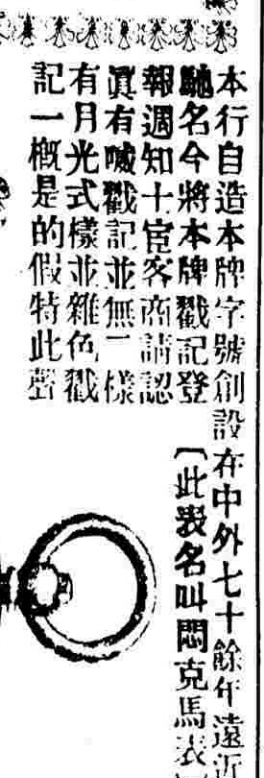 本行自造本牌字號創設在中外七十餘年遠近
馳名今將本牌戳記登
報週知士宦客商請認
眞有喴戳記並無二樣
有月光式樣並雜色戳
記一概是的假特此聲
〔此表名叫悶克馬表